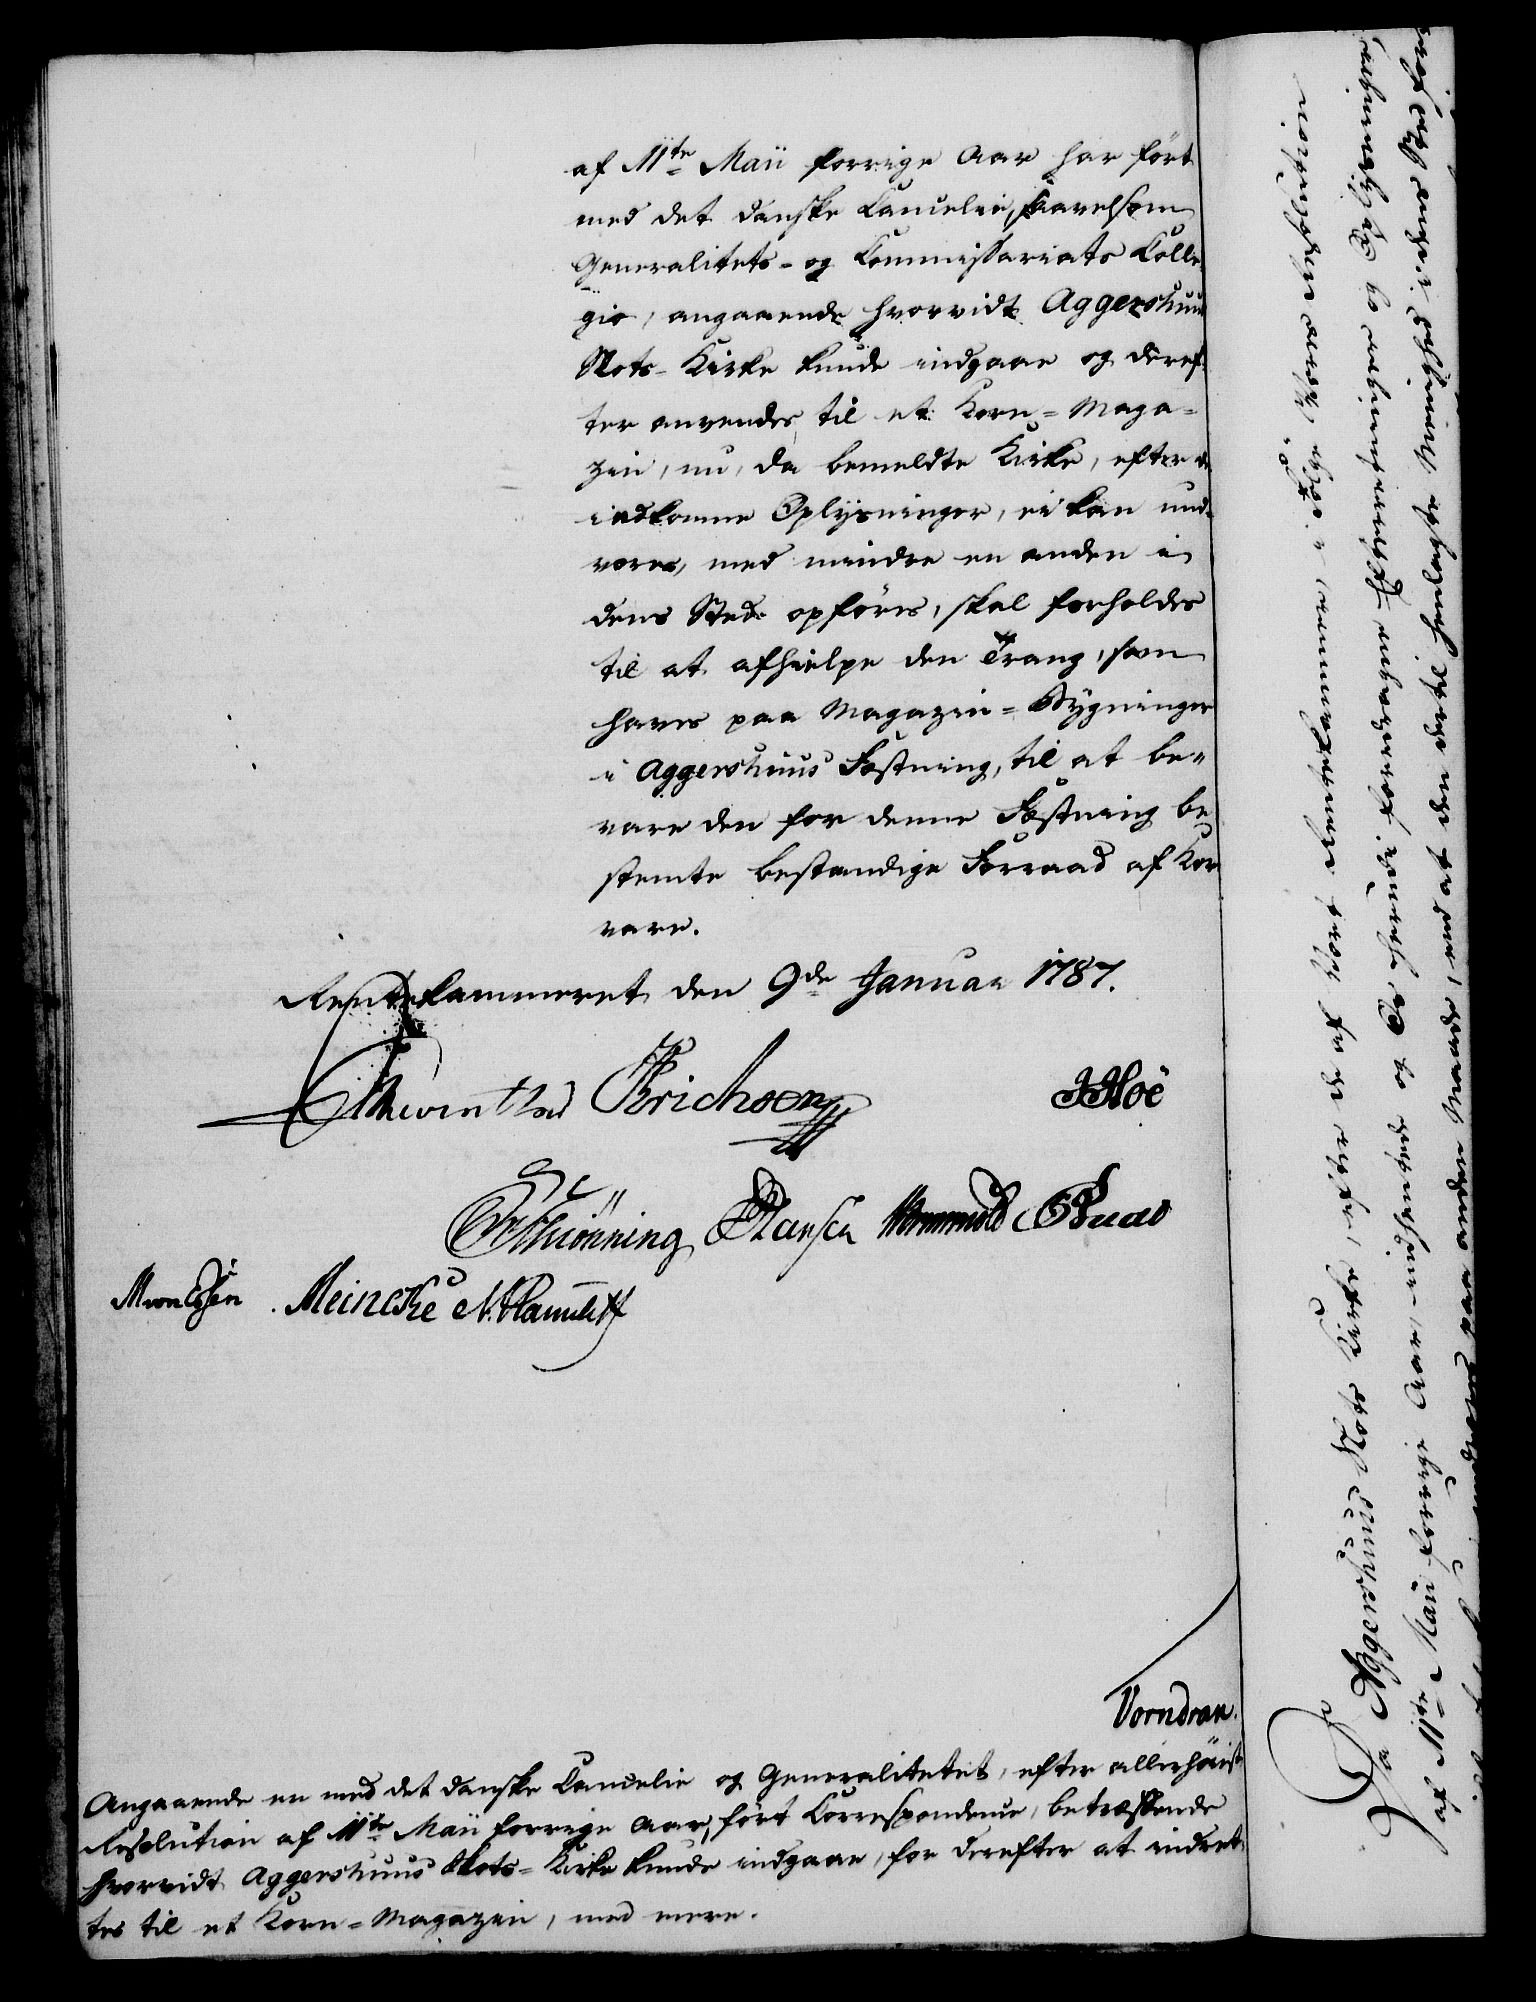 af 11te Maii forrige Aar har ført
med det danske Cancelie, saavelsom
Generalitets- og Commissariats Colle-
gio, angaaende hvorvidt Aggershuus
Slots-Kirke kunde indgaae og deref-
ter anvendes til et Korn-Maga-
zin, nu, da bemeldte Kirke, efter de
indkomne Oplysninger, ei kan und-
væres, med mindre en anden i
dens Sted opføres, skal forholdes
til at afhielpe den Trang, som
haves paa Magazin-Bygninger
i Aggershuus Fæstning, til at be-
vare den for denne Fæstning be
stemte bestandige Forraad af Kor
vare.
Rentekammeret den 9de Januar 1787.
Erichsen
Schiønning Hansen
Meincke
Vorndran.
Angaaende en med det danske Cancelie og Generalitetet, efter allerhøiste
Resolution af 11te Maii forrige Aar, ført Correspondence, betræffende
hvorvidt Aggershuus Slots-Kirke kunde indgaae, for derefter at indret-
tes til et Korn-Magazin, med mere.
Da Aggershuus Slots Kirke, efter de af Vort Rentekammer, i Følge Vores Resolution
af 11te Maii forrige Aar, indhentede og Os herudi foredragne Efterretninger og Oplysninger,
paa anden Maade, end at den dertil henlagte Menighed i dens Sted for